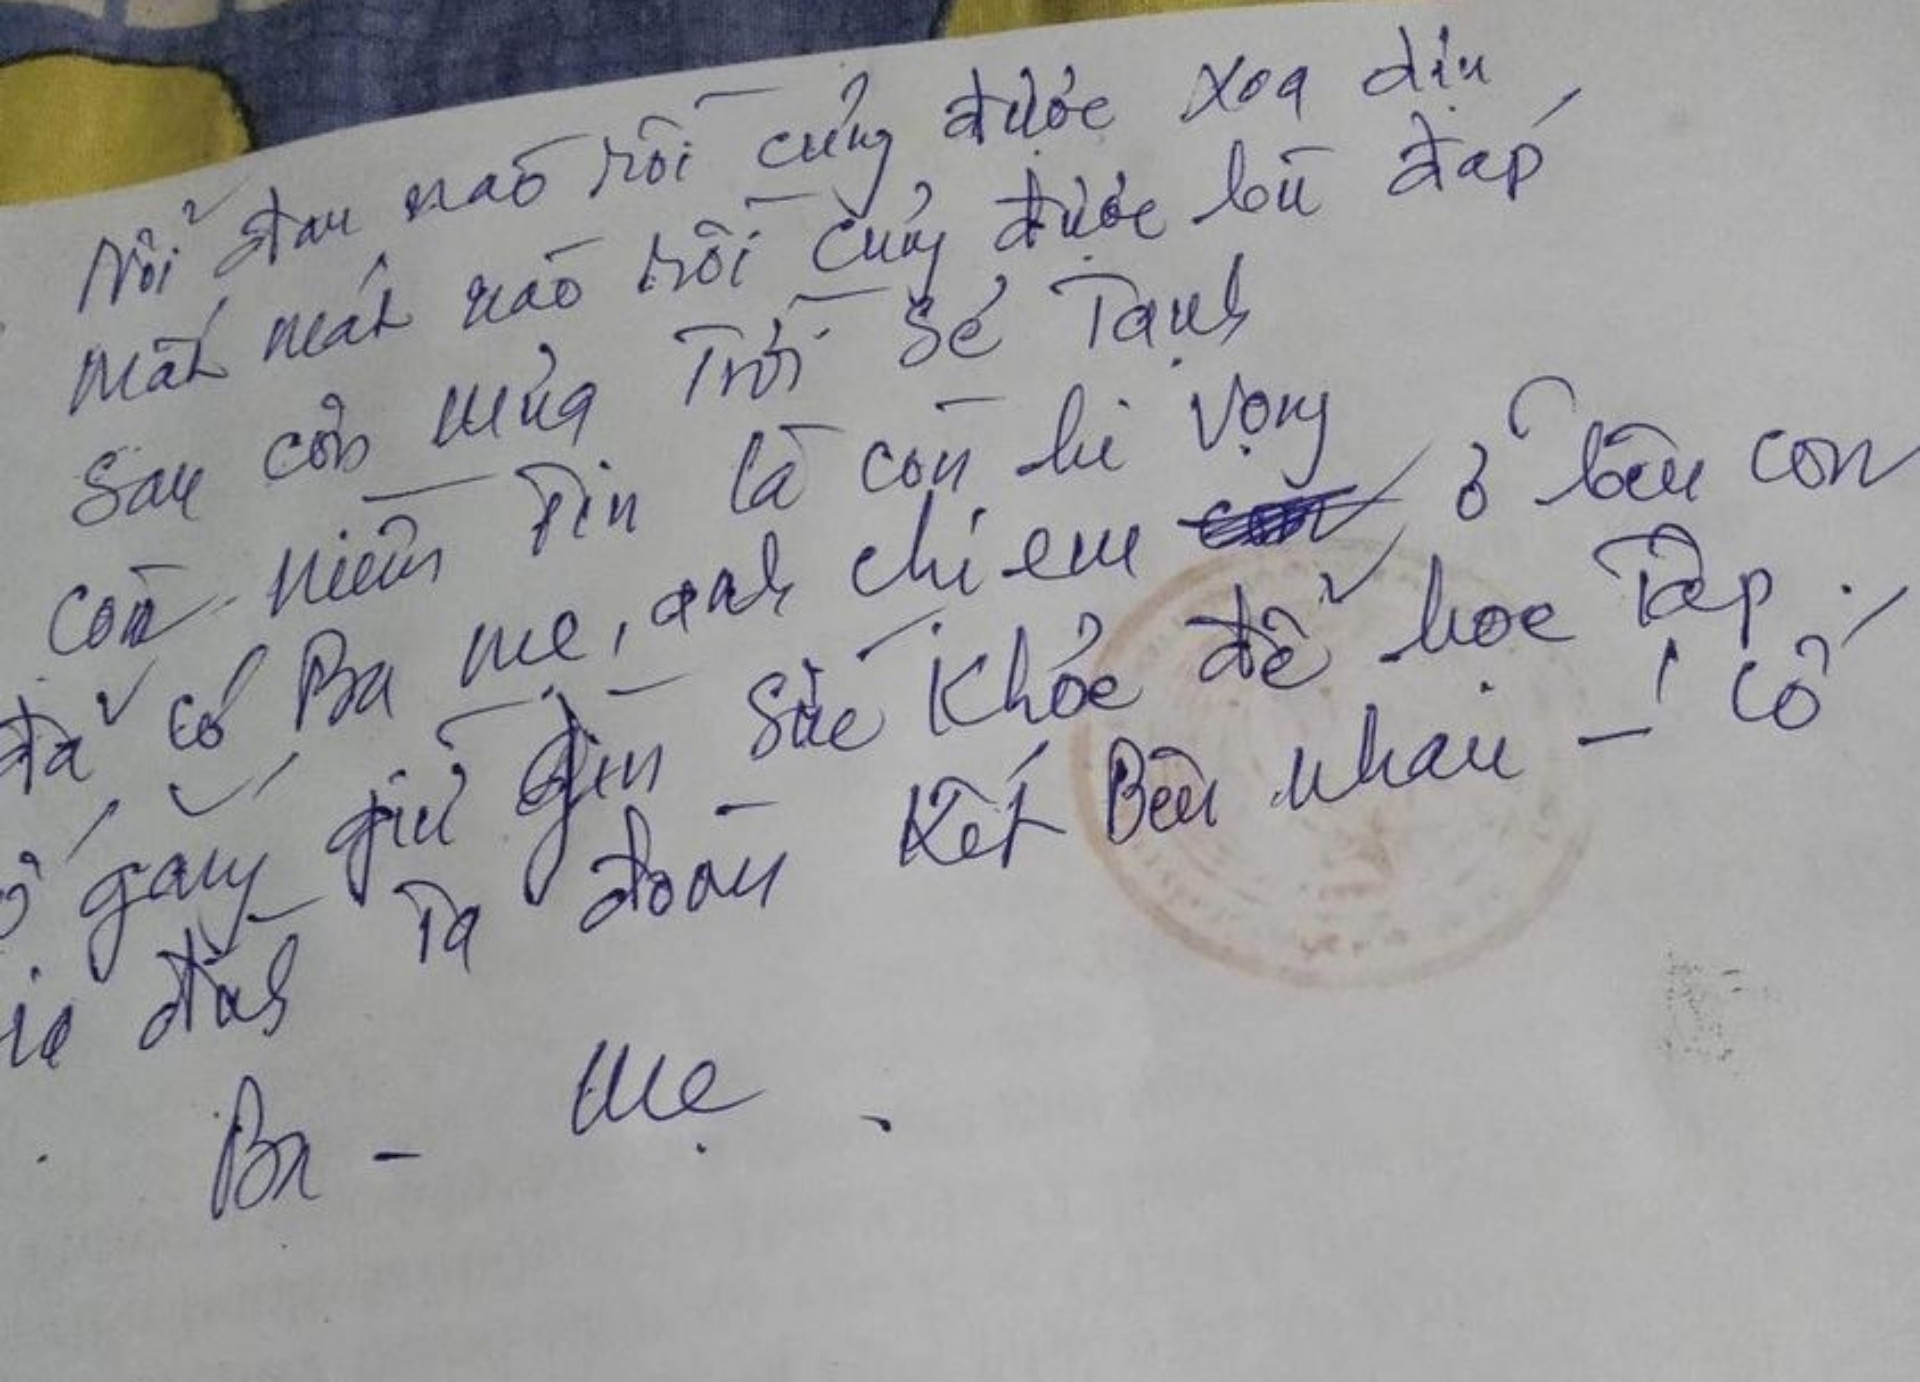 Nỗi đau nào rồi cũng được xoa dịu
mất mát nào rồi cũng được bù đắp
Sau cơn mưa Trời sẽ Tạnh
Còn niềm Tin là còn hi vọng
đã có Ba mẹ, anh chị em ở bên con
gắng giữ gìn sức khỏe để học Tập.
đình Ta đoàn kết Bên nhau - Cố
Ba - Mẹ.